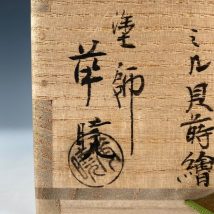 ミル貝蒔繪
塗師
華暁